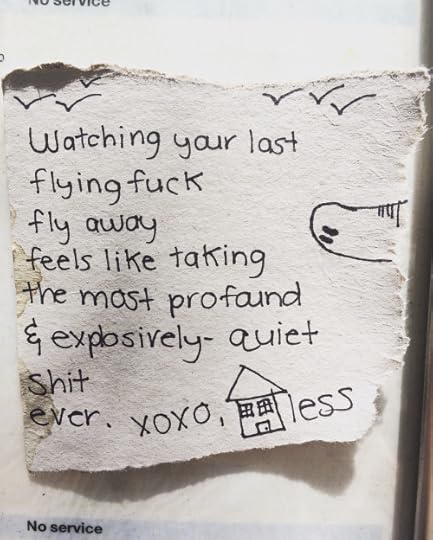 No service
Watching your last
flying fuck
fly away
feels like taking
the most profound
& explosively- quiet
shit
ever. xoxo, less
No service